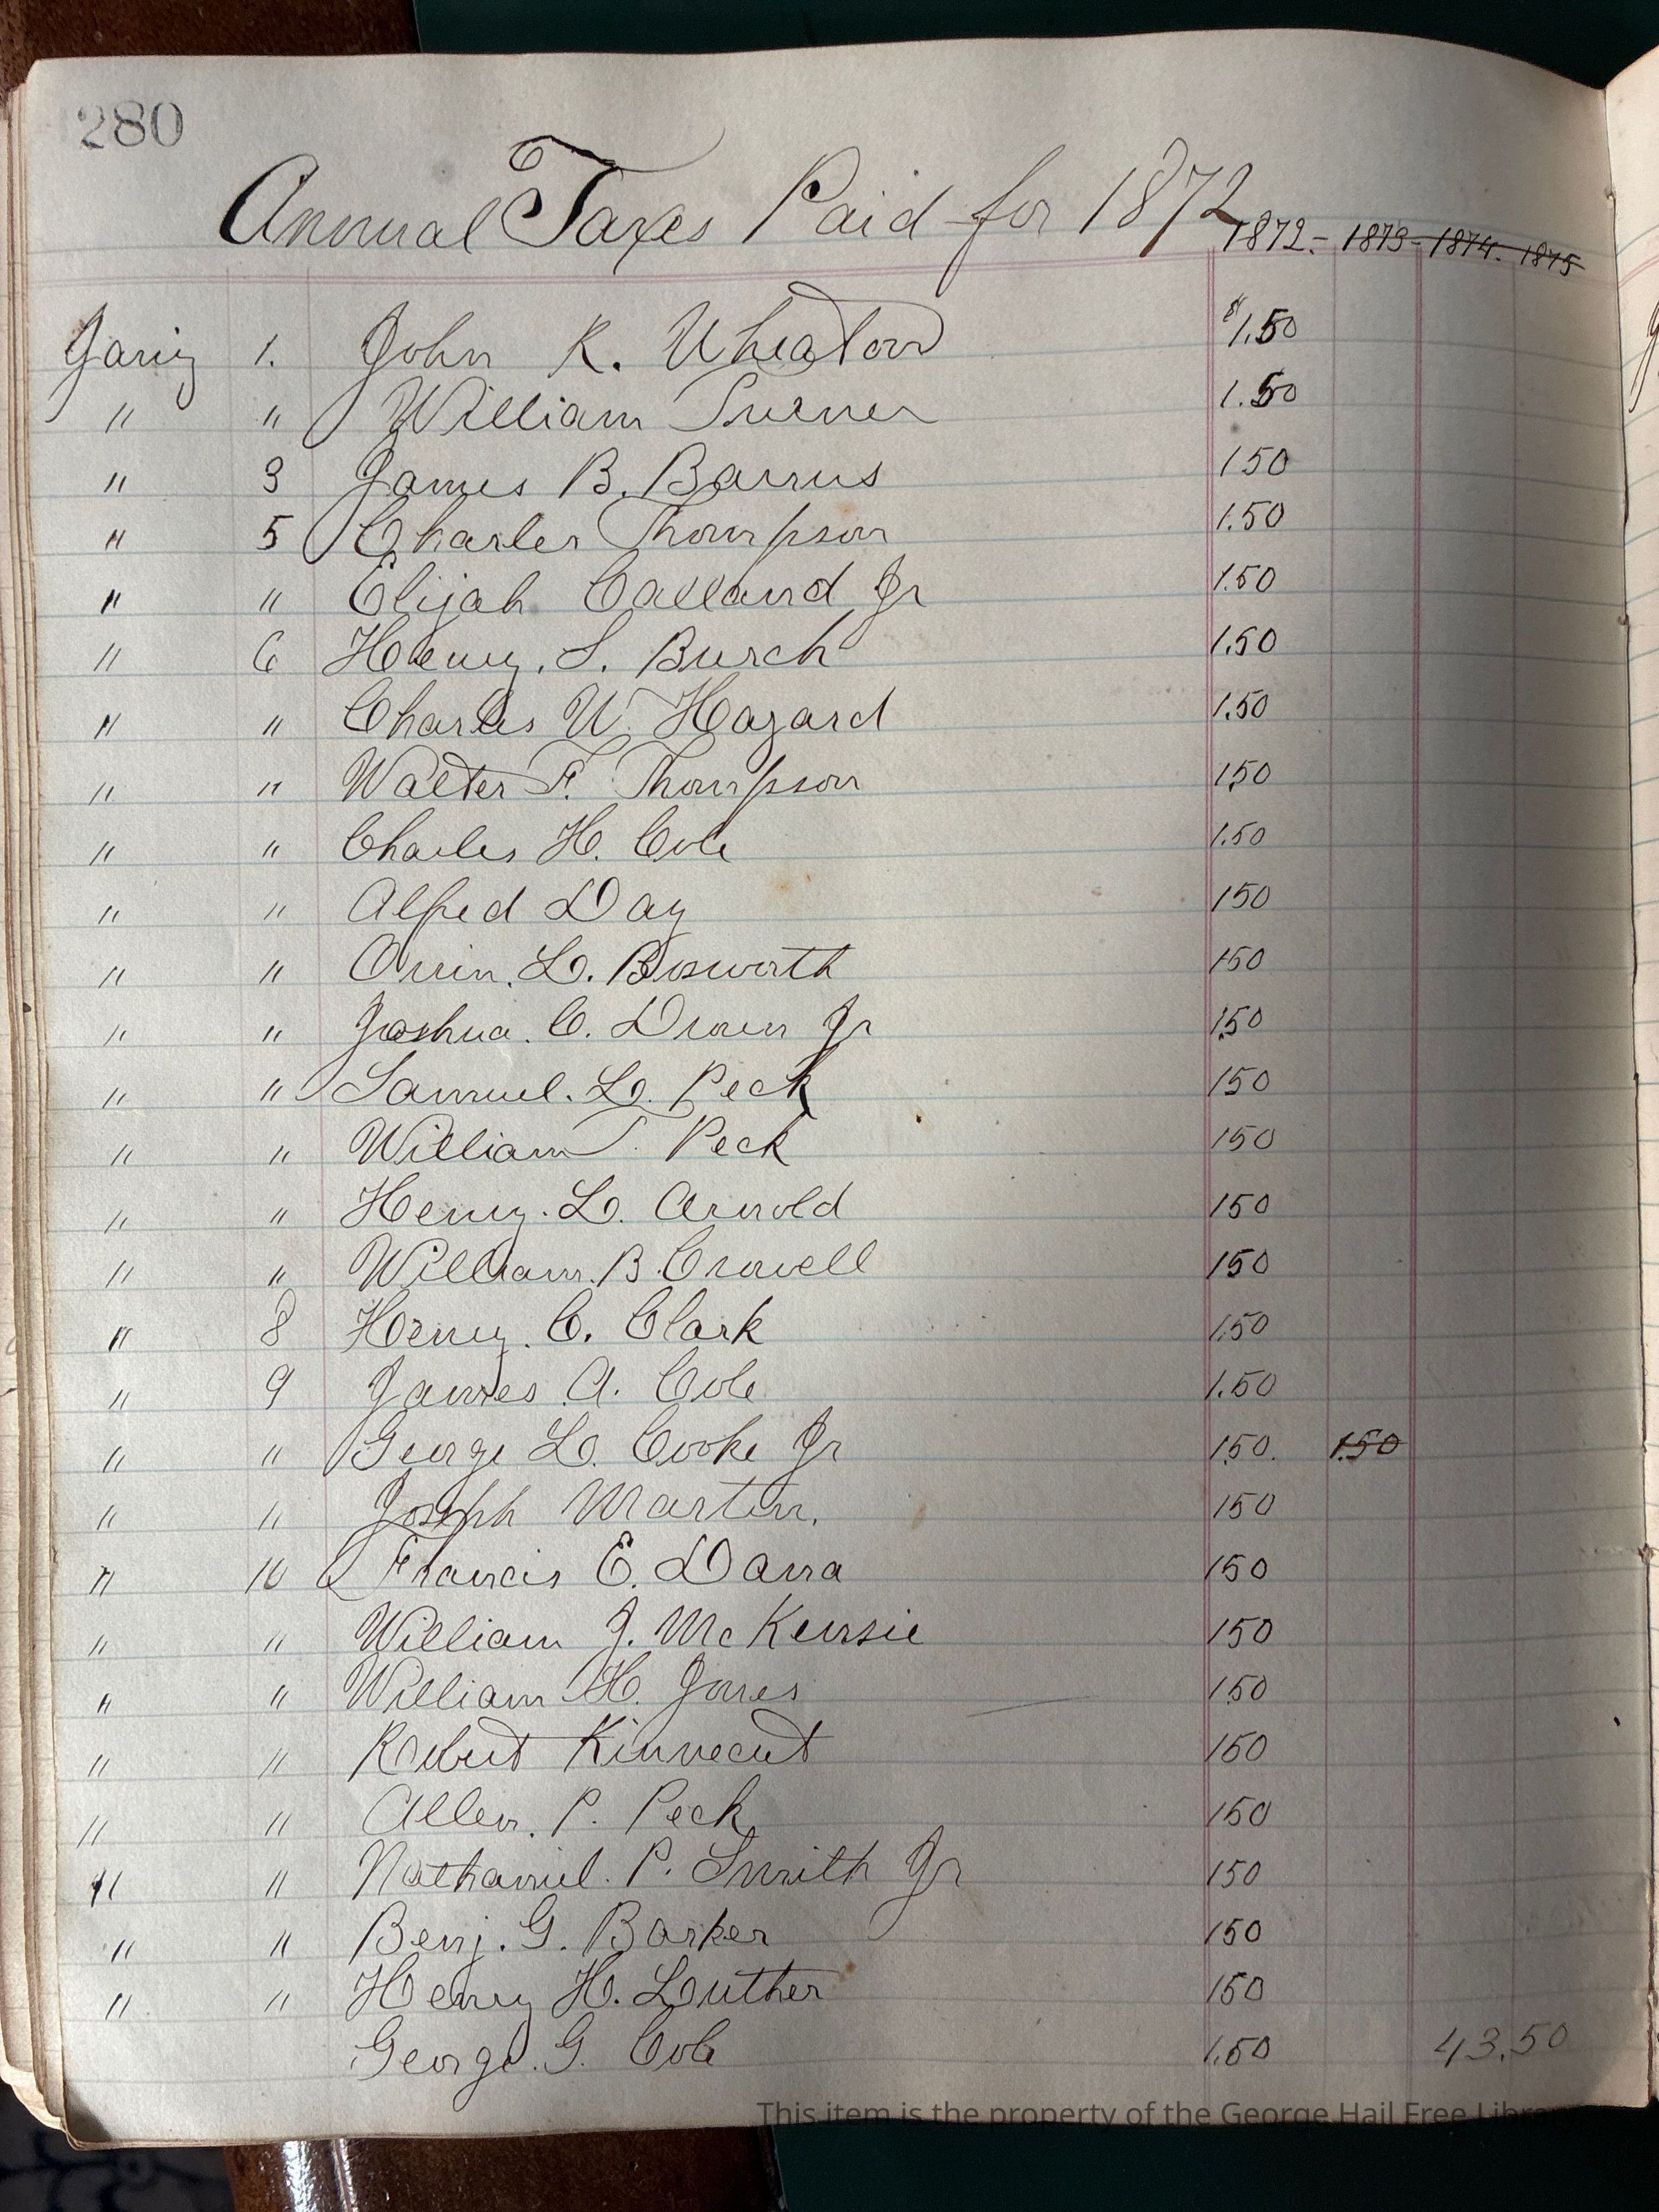 280
Annual Taxes Paid for 1872
1872.- 1873- 1874. 1875
1. John K. Wheaton $1.50
" " William Turner 1.50
" 3 James B. Barrus 150
" 5 Charles Thompson 1.50
" " Elijah Jr 1.50
" 6 Henry. S. Burch 1.50
" " Charles W. Hazard 1.50
" " Walter F. Thompson 150
" " Charles H. Cole 1.50
" " Alfred Day 150
" " Orrin. L. Bosworth 150
" " Joshua. C. Drown Jr 150
" " Samuel. L. Peck 150
" " William T. Peck 150
" " Henry. L. Arnold 150
" " William. B. Crowell 150
" 8 Henry. C. Clark 1.50
" 9 James. A. Cole 1.50
" " George L. Cooke Jr 150. 1.50
" " Joseph Martin. 150
" 10 Francis E. Dana 150
" " William J. McKensie 150
" " William H. Jones 150
" " Robert Kinnecut 150
" " Allen. P. Peck 150
" " Nathaniel. P. Smith Jr 150
" " Benj. G. Barker 150
" " Henry H. Luther 150
George. G. Cole 1.50 43.50
This item is the property of the George Hail Free Library